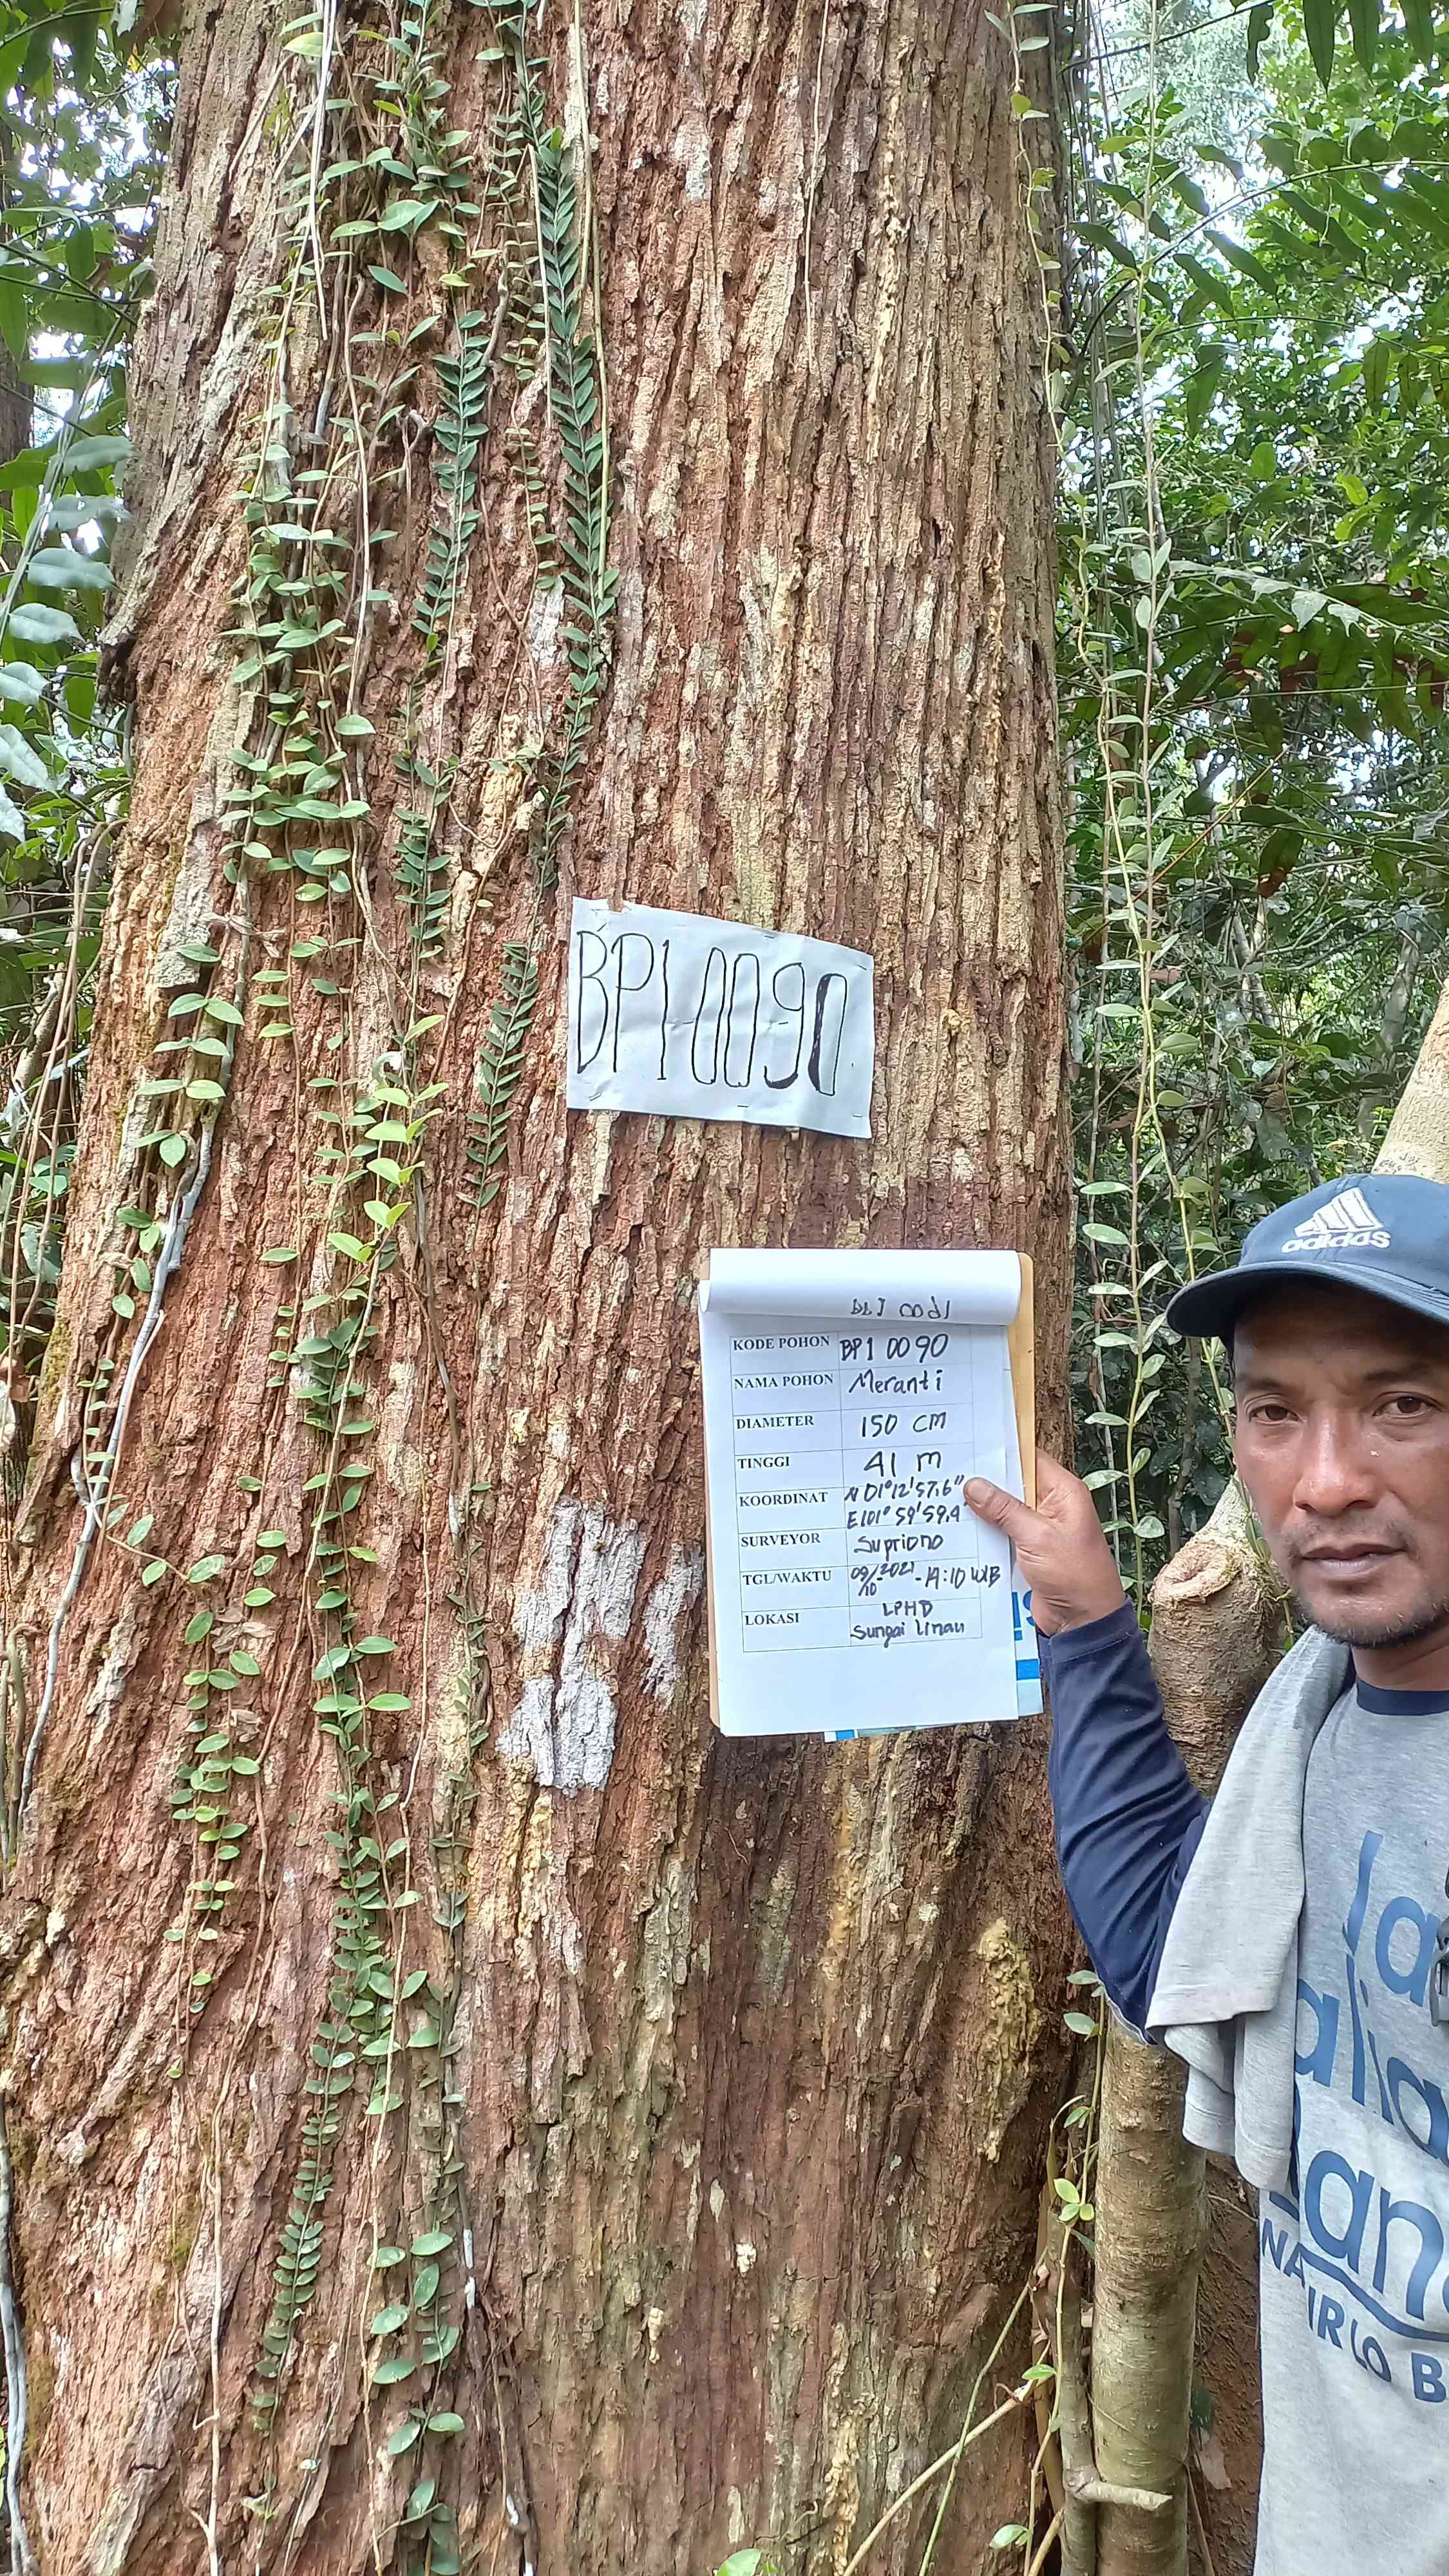 BP1 0090
KODE POHON BP1 0090
NAMA POHON Meranti
DIAMETER 150 CM
TINGGI 41 m
KOORDINAT N 01°12'57,6"
E101° 59'59,9
SURVEYOR Supriono
TGL/WAKTU 09/10-2021-14:10 WIB
LOKASI LPHD
Sungai Linau
adidas